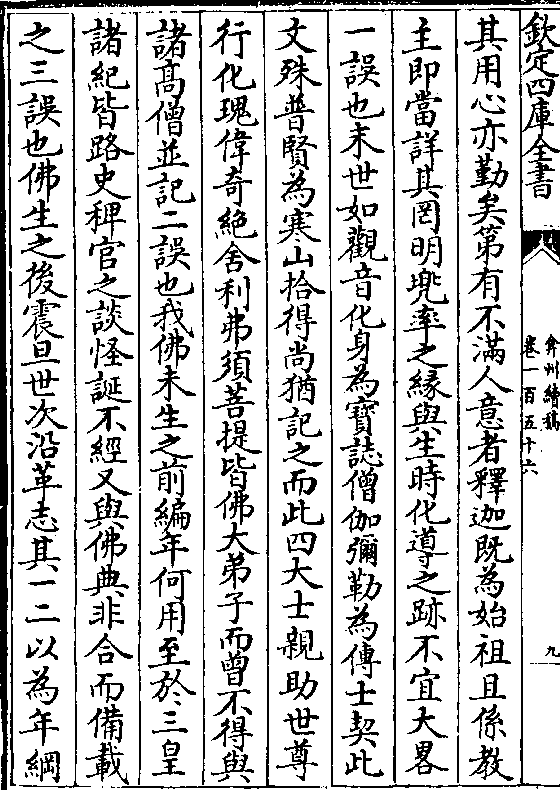 欽定四庫全書
弇州續稿
卷一百五十六
九
其用心亦勤矣第有不滿人意者釋迦既為始祖且係教
主即當詳其罔明兜率之緣與生時化導之跡不宜大畧
一誤也末世如觀音化身為寶誌僧伽彌勒為傅士契此
文殊普賢為寒山拾得尚猶記之而此四大士親助世尊
行化瑰偉奇絶舍利弗須菩提皆佛大弟子而曾不得與
諸髙僧並記二誤也我佛未生之前編年何用至於三皇
諸紀皆路史稗官之談怪誕不經又與佛典非合而備載
之三誤也佛生之後震旦世次沿革志其一二以為年綱